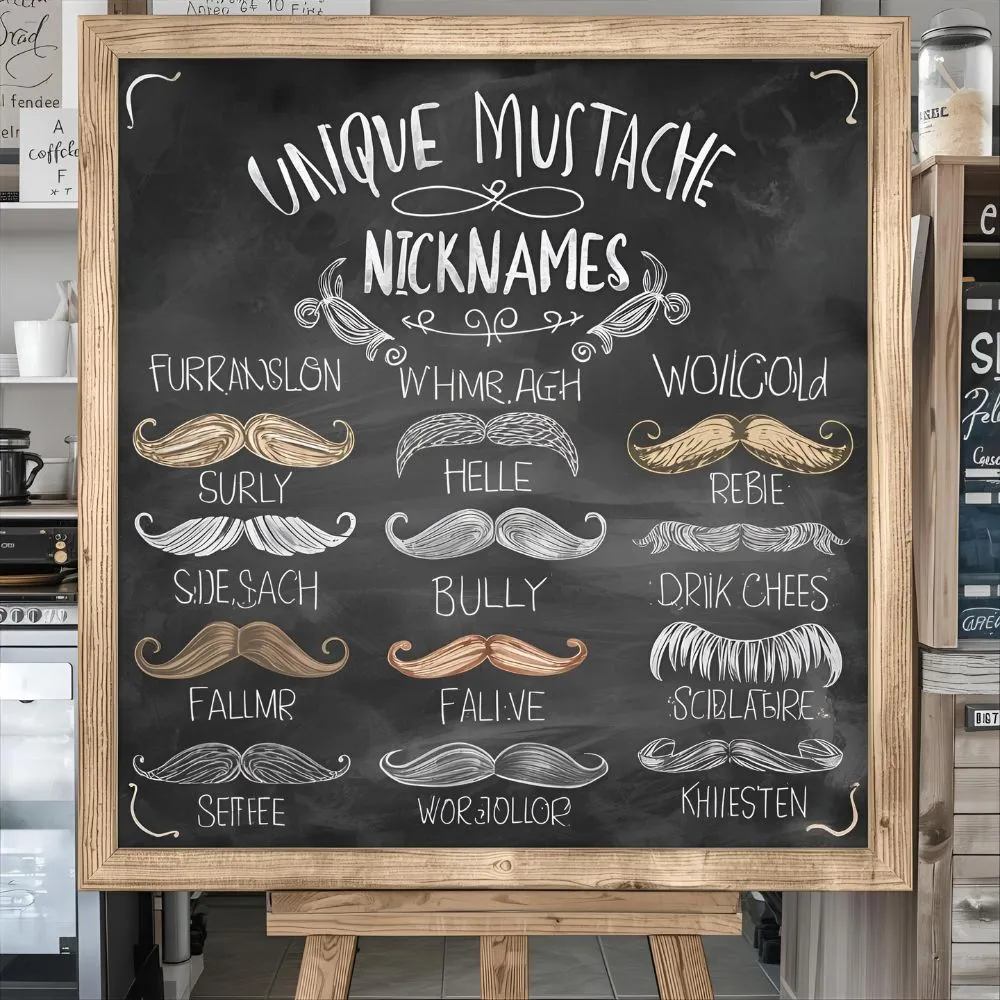 UNIQUE MUSTACHE
NICKNAMES
FURRANGLON
WHMR.AGH
WOILGOLd
SURLY
HELLE
REBIE
SIDE,SACH
BULLY
DRIIK CHEES
FALLMR
FALI:VE
SCIBLABIRE
SEFFEE
WORJOLLOR
KHIIESTEN
fendee
A
F